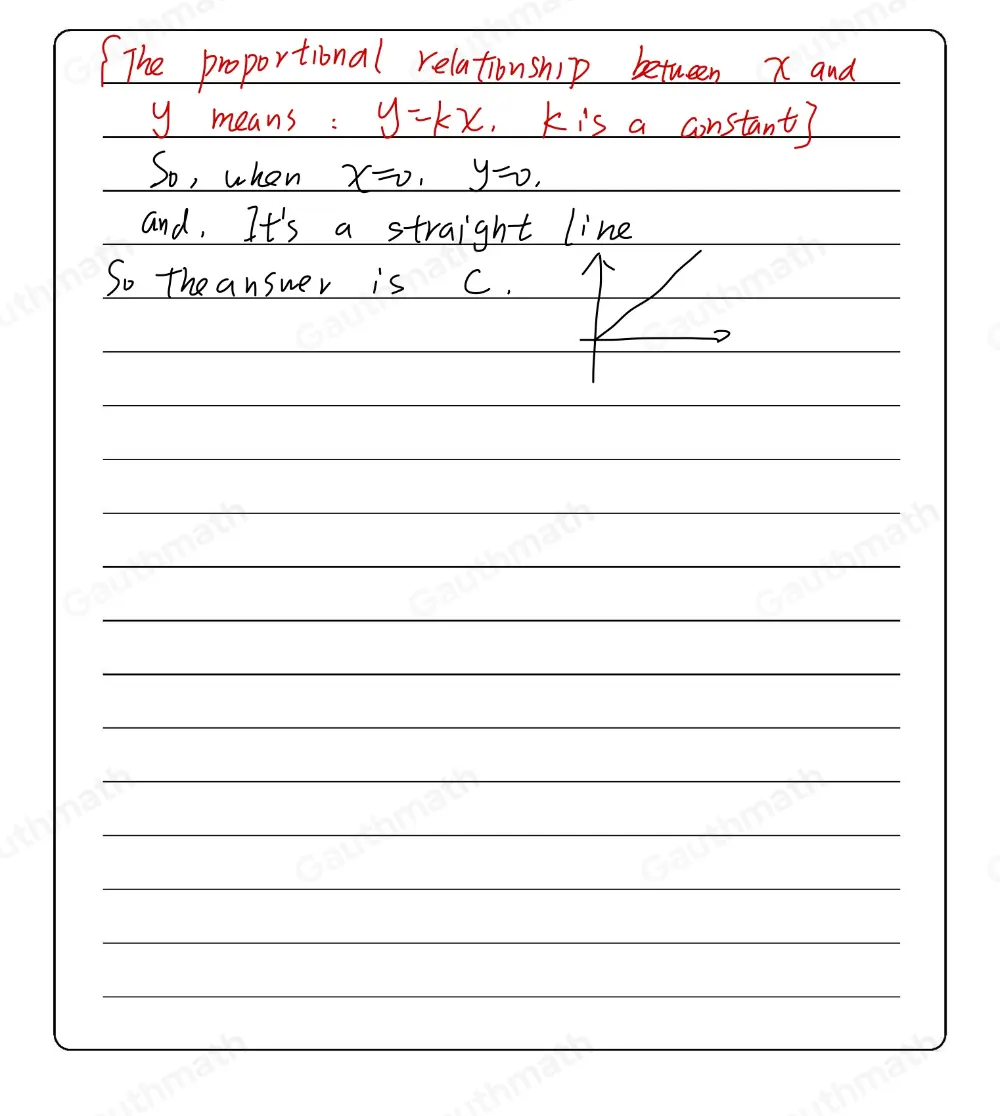 {The proportional relationship between x and
y means : y=kx. k is a constant}
So, when x=0. y=0.
and. It's a straight line
So The answer is C.